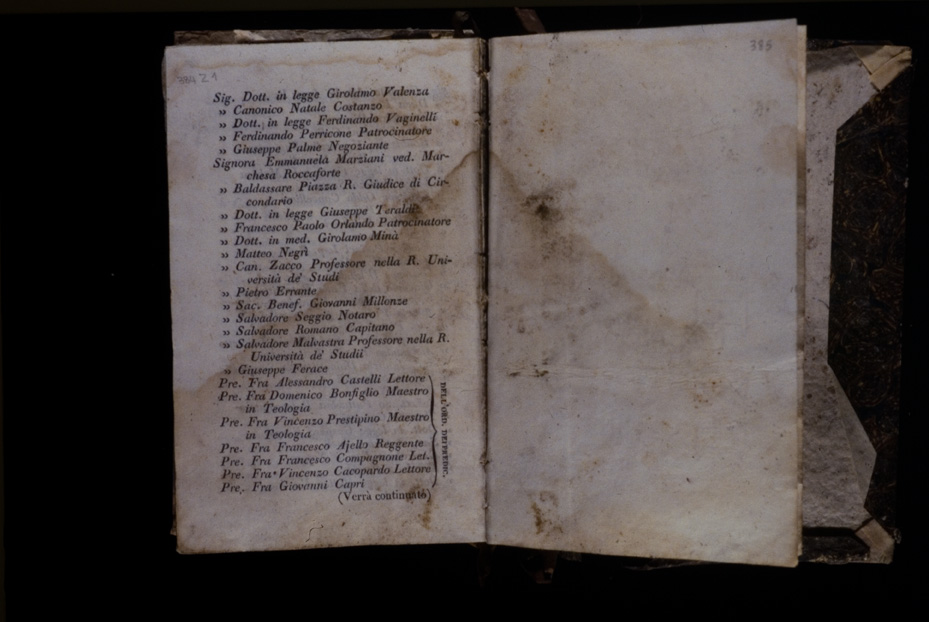 385
Sig. Dott. in legge Girolamo Valenza
„ Canonico Natale Costanzo
„ Dott. in legge Ferdinando Vaginelli
„ Ferdinando Perricone Patrocinatore
„ Giuseppe Palme Negoziante
Signora Emmanuela Marziani ved. Mar-
chesa Roccaforte
„ Baldassare Piazza R. Giudice di Cir-
condario
„ Dott. in legge Giuseppe Teraldi
„ Francesco Paolo Orlando Patrocinatore
„ Dott. in med. Girolamo Minà
„ Matteo Negri
„ Can. Zacco Professore nella R. Uni-
versità de' Studi
„ Pietro Errante
„ Sac. Benef. Giovanni Millonze
„ Salvadore Seggio Notaro
„ Salvadore Romano Capitano
„ Salvadore Malvastra Professore nella R.
Università de' Studii
„ Giuseppe Ferace
Pre. Fra Alessandro Castelli Lettore
Pre. Fra Domenico Bonfiglio Maestro
in Teologia
Pre. Fra Vincenzo Prestipino Maestro
in Teologia
Pre. Fra Francesco Ajello Reggente
Pre. Fra Francesco Compagnone Let.
Pre. Fra Vincenzo Cacopardo Lettore
Pre. Fra Giovanni Capri
DELL'ORD. DEI PREDIC.
(Verrà continuato)